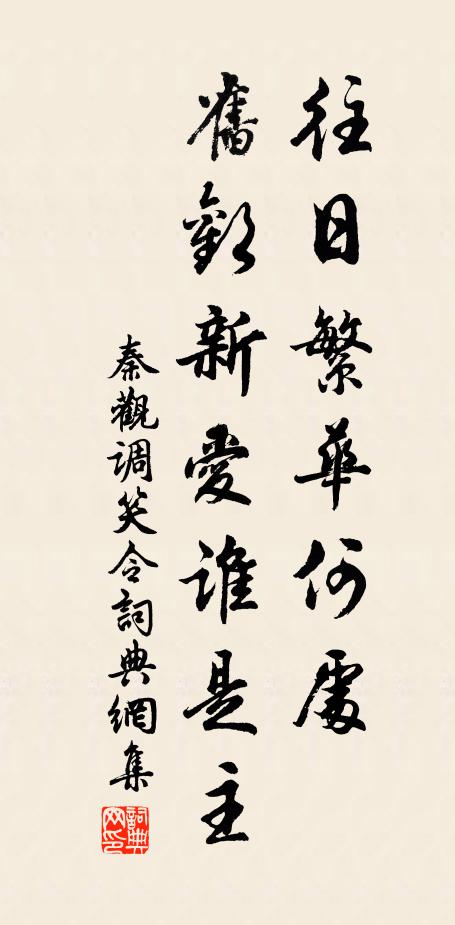 往日繁華何處
舊歡新愛誰是主
秦觀調笑令詞典網集
詞典网印